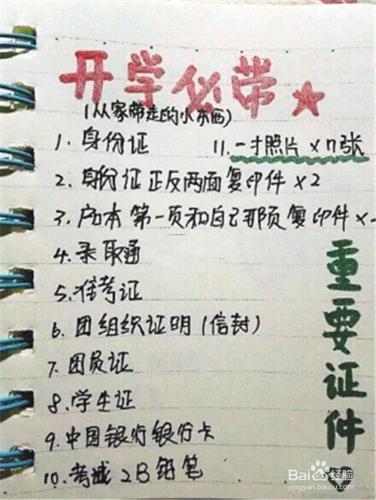 开学必带
(从家带走的小东西)
1. 身份证
11. 一寸照片 ×n张
2. 身份证正反两面复印件 ×2
3. 户口本第一页和自己那页复印件 ×
4. 录取通
5. 准考证
6. 团组织证明(信封)
7. 团员证
8. 学生证
9. 中国银行银行卡
10. 2B铅笔
重要证件
Baidu 经验
jingyan.baidu.com